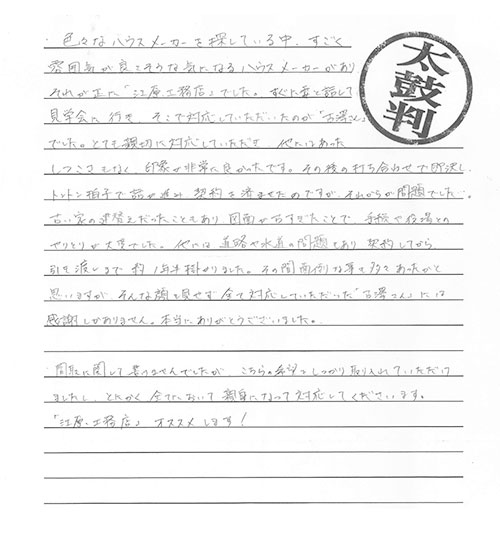 ・色々なハウスメーカーを探している中、すごく
雰囲気が良さそうな気になるハウスメーカーがあり
それが正に「江原工務店」でした。すぐに妻と話して
見学会に行き、そこで対応していただいたのが「古澤さん」
でした。とても親切に対応していただき、他にはあった
しつこさもなく、印象が非常に良かったです。その後の打ち合わせで即決し
トントン拍子で話が進み、契約を済ませたのですが、それからが問題でした…。
古い家の建替えだったこともあり図面が古すぎたことで、手続や役場との
やりとりが大変でした。他には道路や水道の問題もあり契約してから
引き渡しまで約1年半掛かりました。その間面倒な事も多々あったかと
思いますが、そんな顔も見せず全て対応していただいた「古澤さん」には
感謝しかありません。本当にありがとうございました。
・間取に関して書けませんでしたが、こちらの希望をしっかり取り入れていただけ
ましたし、とにかく全てにおいて親身になって対応してくださいます。
「江原工務店」オススメします！
太鼓判